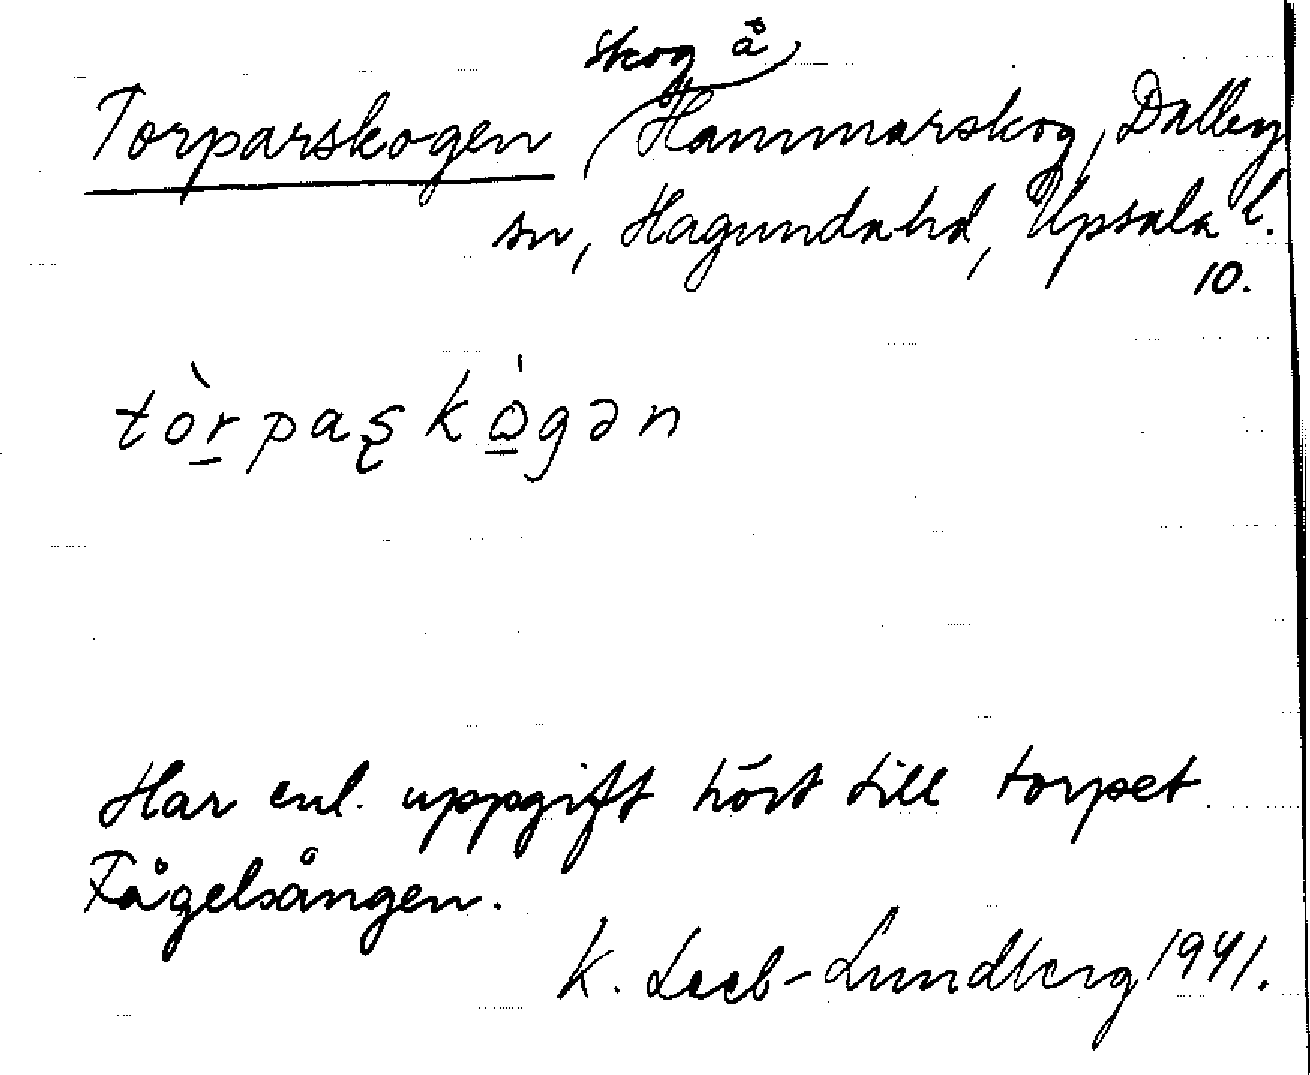 skog å
Torparskogen Hammarskog, Dalby
sn, Hagunda hd, Upsala l.
10.
tòrpaʂkògən
Har enl. uppgift hört till torpet
Fågelsången.
K. Leeb-Lundberg 1941.